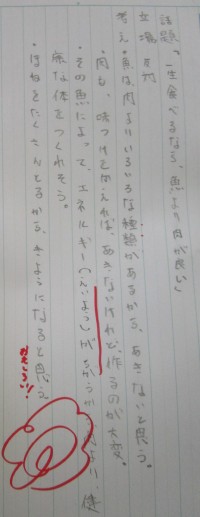 話題、「一生食べるなら、魚より肉が良い」
立場 反対
考え
・魚は肉よりいろいろな種類があるから、あきないと思う。
・肉も、味つけを変えれば、あきないけれど、作るのが大変。
・その魚によって、エネルギー(えいよう)がちがうから
康な体をつくれそう。
・ほねをたくさんとるから、きようになると思う。